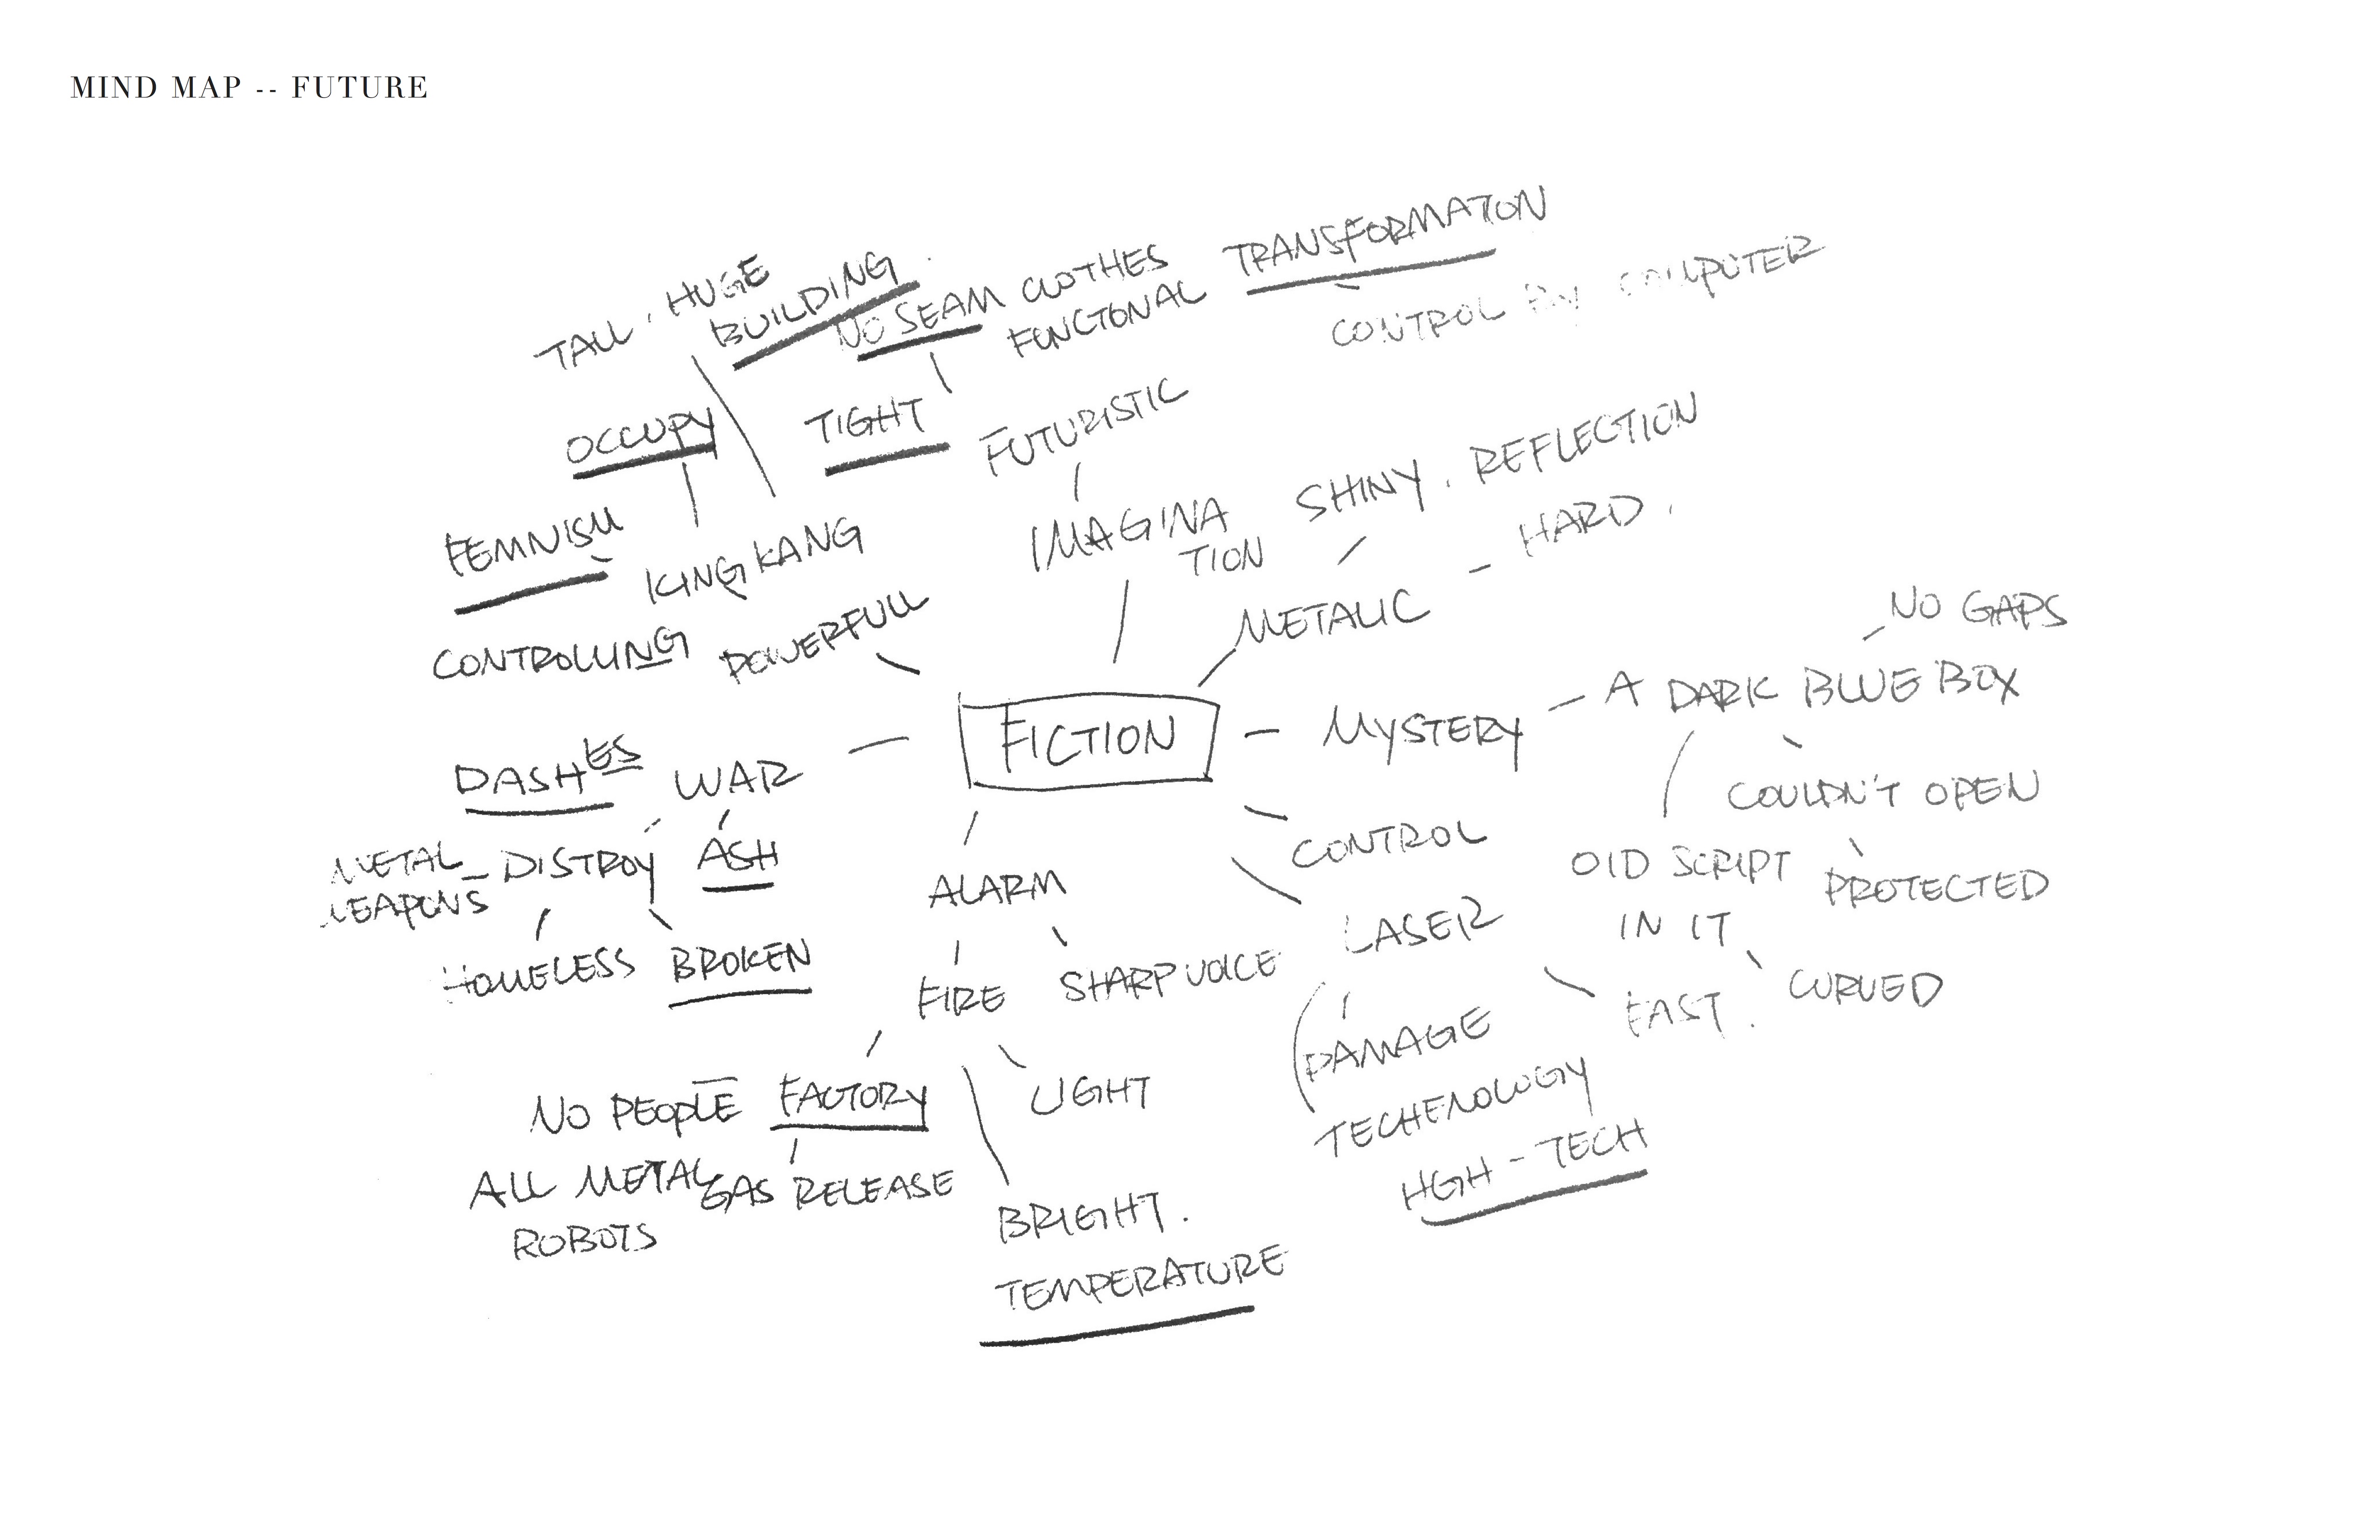 MIND MAP -- FUTURE
TRANSFORMATON
CONTROL BY COMPUTER
TALL. HUGE
BUILDING.
NO SEAM CLOTHES
FUNCTONAL
OCCUPY
TIGHT
FUTURISTIC
IMAGINA
TION
SHINY. REFLECTION
HARD.
FEMNISM
KINGKANG
METALIC
CONTROLLING
POWERFULL
NO GAPS
FICTION
MYSTERY
A DARK BLUE BOX
DASHES
WAR
COULDN'T OPEN
METAL
WEAPONS
DISTROY
ASH
ALARM
CONTROL
OLD SCRIPT
IN IT
PROTECTED
HOMELESS
BROKEN
FIRE
SHARP VOICE
LASER
FAST.
CURVED
DAMAGE
TECHENOLOGY
HGH-TECH
NO PEOPLE
FACTORY
LIGHT
ALL METAL
ROBOTS
GAS RELEASE
BRIGHT.
TEMPERATURE